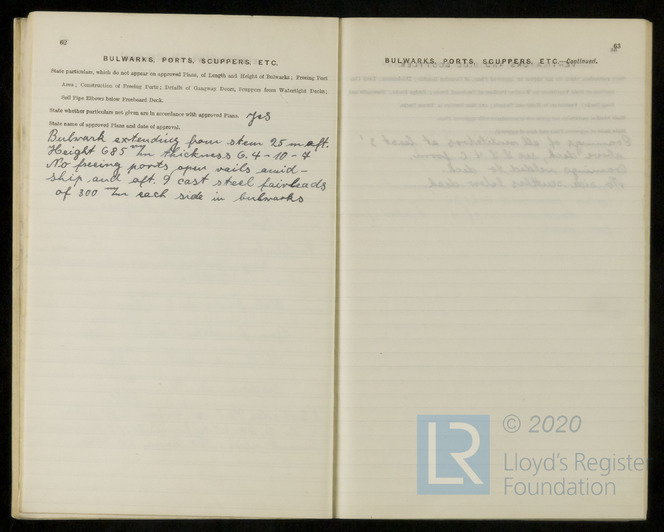 62
BULWARKS, PORTS, SCUPPERS, ETC.
State particulars, which do not appear on approval Plans, of Length and Height of Bulwarks; Freeing Port
Area; Construction of Freeing Ports; Details of Gangway Doors, Scuppers from Watertight Decks;
Soil Pipe Elbows below Freeboard Deck.
State whether particulars not given are in accordance with approved Plans. Yes
State name of approved Plans and date of approval.
Bulwark extending from stem 25 m aft.
Height 685 m/m thickness 6.4-10-4
No freeing ports open rails amid-
ship and aft. 9 cast steel fairleads
of 300 m/m each side in bulwarks
63
BULWARKS, PORTS, SCUPPERS, ETC.—Continued.
LR
© 2020
Lloyd's Register
Foundation